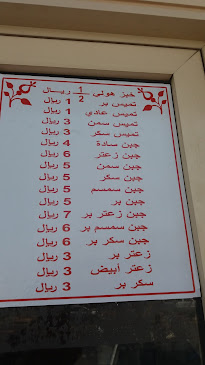 خبز هولي 1/2 ريال
تميس بر 1 ريال
تميس عادي 1 ريال
تميس سمن 3 ريال
تميس سكر 3 ريال
جبن سادة 4 ريال
جبن زعتر 6 ريال
جبن سمن 5 ريال
جبن سكر 5 ريال
جبن سمسم 5 ريال
جبن بر 5 ريال
جبن زعتر بر 7 ريال
جبن سمسم بر 6 ريال
جبن سكر بر 6 ريال
زعتر بر 3 ريال
زعتر أبيض 3 ريال
سكر بر 3 ريال